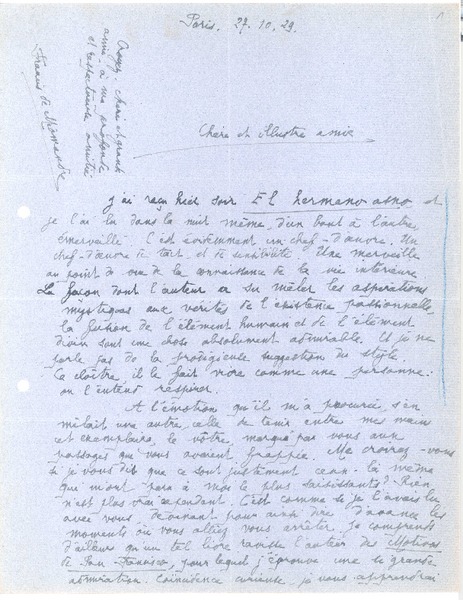 Paris. 27.10.29.
1
Croyez, chère et grande
amie, à ma profonde
et respectueuse amitié
Francis de Miomandre
Chère et illustre amie
j'ai reçu hier soir El hermano asno et
je l'ai lu dans la nuit même, d'un bout à l'autre,
émerveillé. C'est certainement un chef-d'œuvre. Un
chef-d'œuvre de tact et de sensibilité. Une merveille
au point de vue de la connaissance de la vie intérieure
La façon dont l'auteur a su mêler les aspirations
mystiques aux vérités de l'existence passionnelle,
la fusion de l'élément humain et de l'élément
divin sont une chose absolument admirable. Et je ne
parle pas de la prodigieuse suggestion du style.
Ce cloître, il le fait vivre comme une personne:
on l'entend respirer.
A l'émotion qu'il m'a procurée, s'en
mêlait une autre, celle de tenir entre mes mains
cet exemplaire, le vôtre, marqué par vous aux
passages qui vous avaient frappée. Me croirez-vous
si je vous dis que ce sont justement ceux-là même
qui m'ont paru à moi le plus saisissants? Rien
n'est plus vrai cependant. C'est comme si je l'avais lu
avec vous, devinant pour ainsi dire d'avance les
moments où vous alliez vous arrêter. Je comprends
d'ailleurs qu'un tel livre ravisse l'auteur des Motivos
de San Francisco, pour lequel j'éprouve une si grande
admiration. Coïncidence curieuse, je vous apprendrai